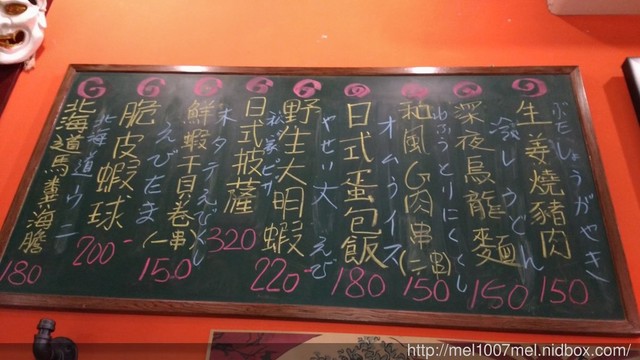 ぶたしょうがやき
生姜燒豬肉
150
冷しうどん
深夜烏龍麵
150
わふうとりにくくし
和風G肉串(二串)
150
オムライス
日式蛋包飯
180
やせい大えび
野生大明蝦
220-
ピザ
日式披薩
320
ホタテえびくし
鮮蝦干貝卷(一串)
150
えびたま
脆皮蝦球
200-
北海道ウニ
北海道馬糞海膽
180
http://mel1007mel.nidbox.com/